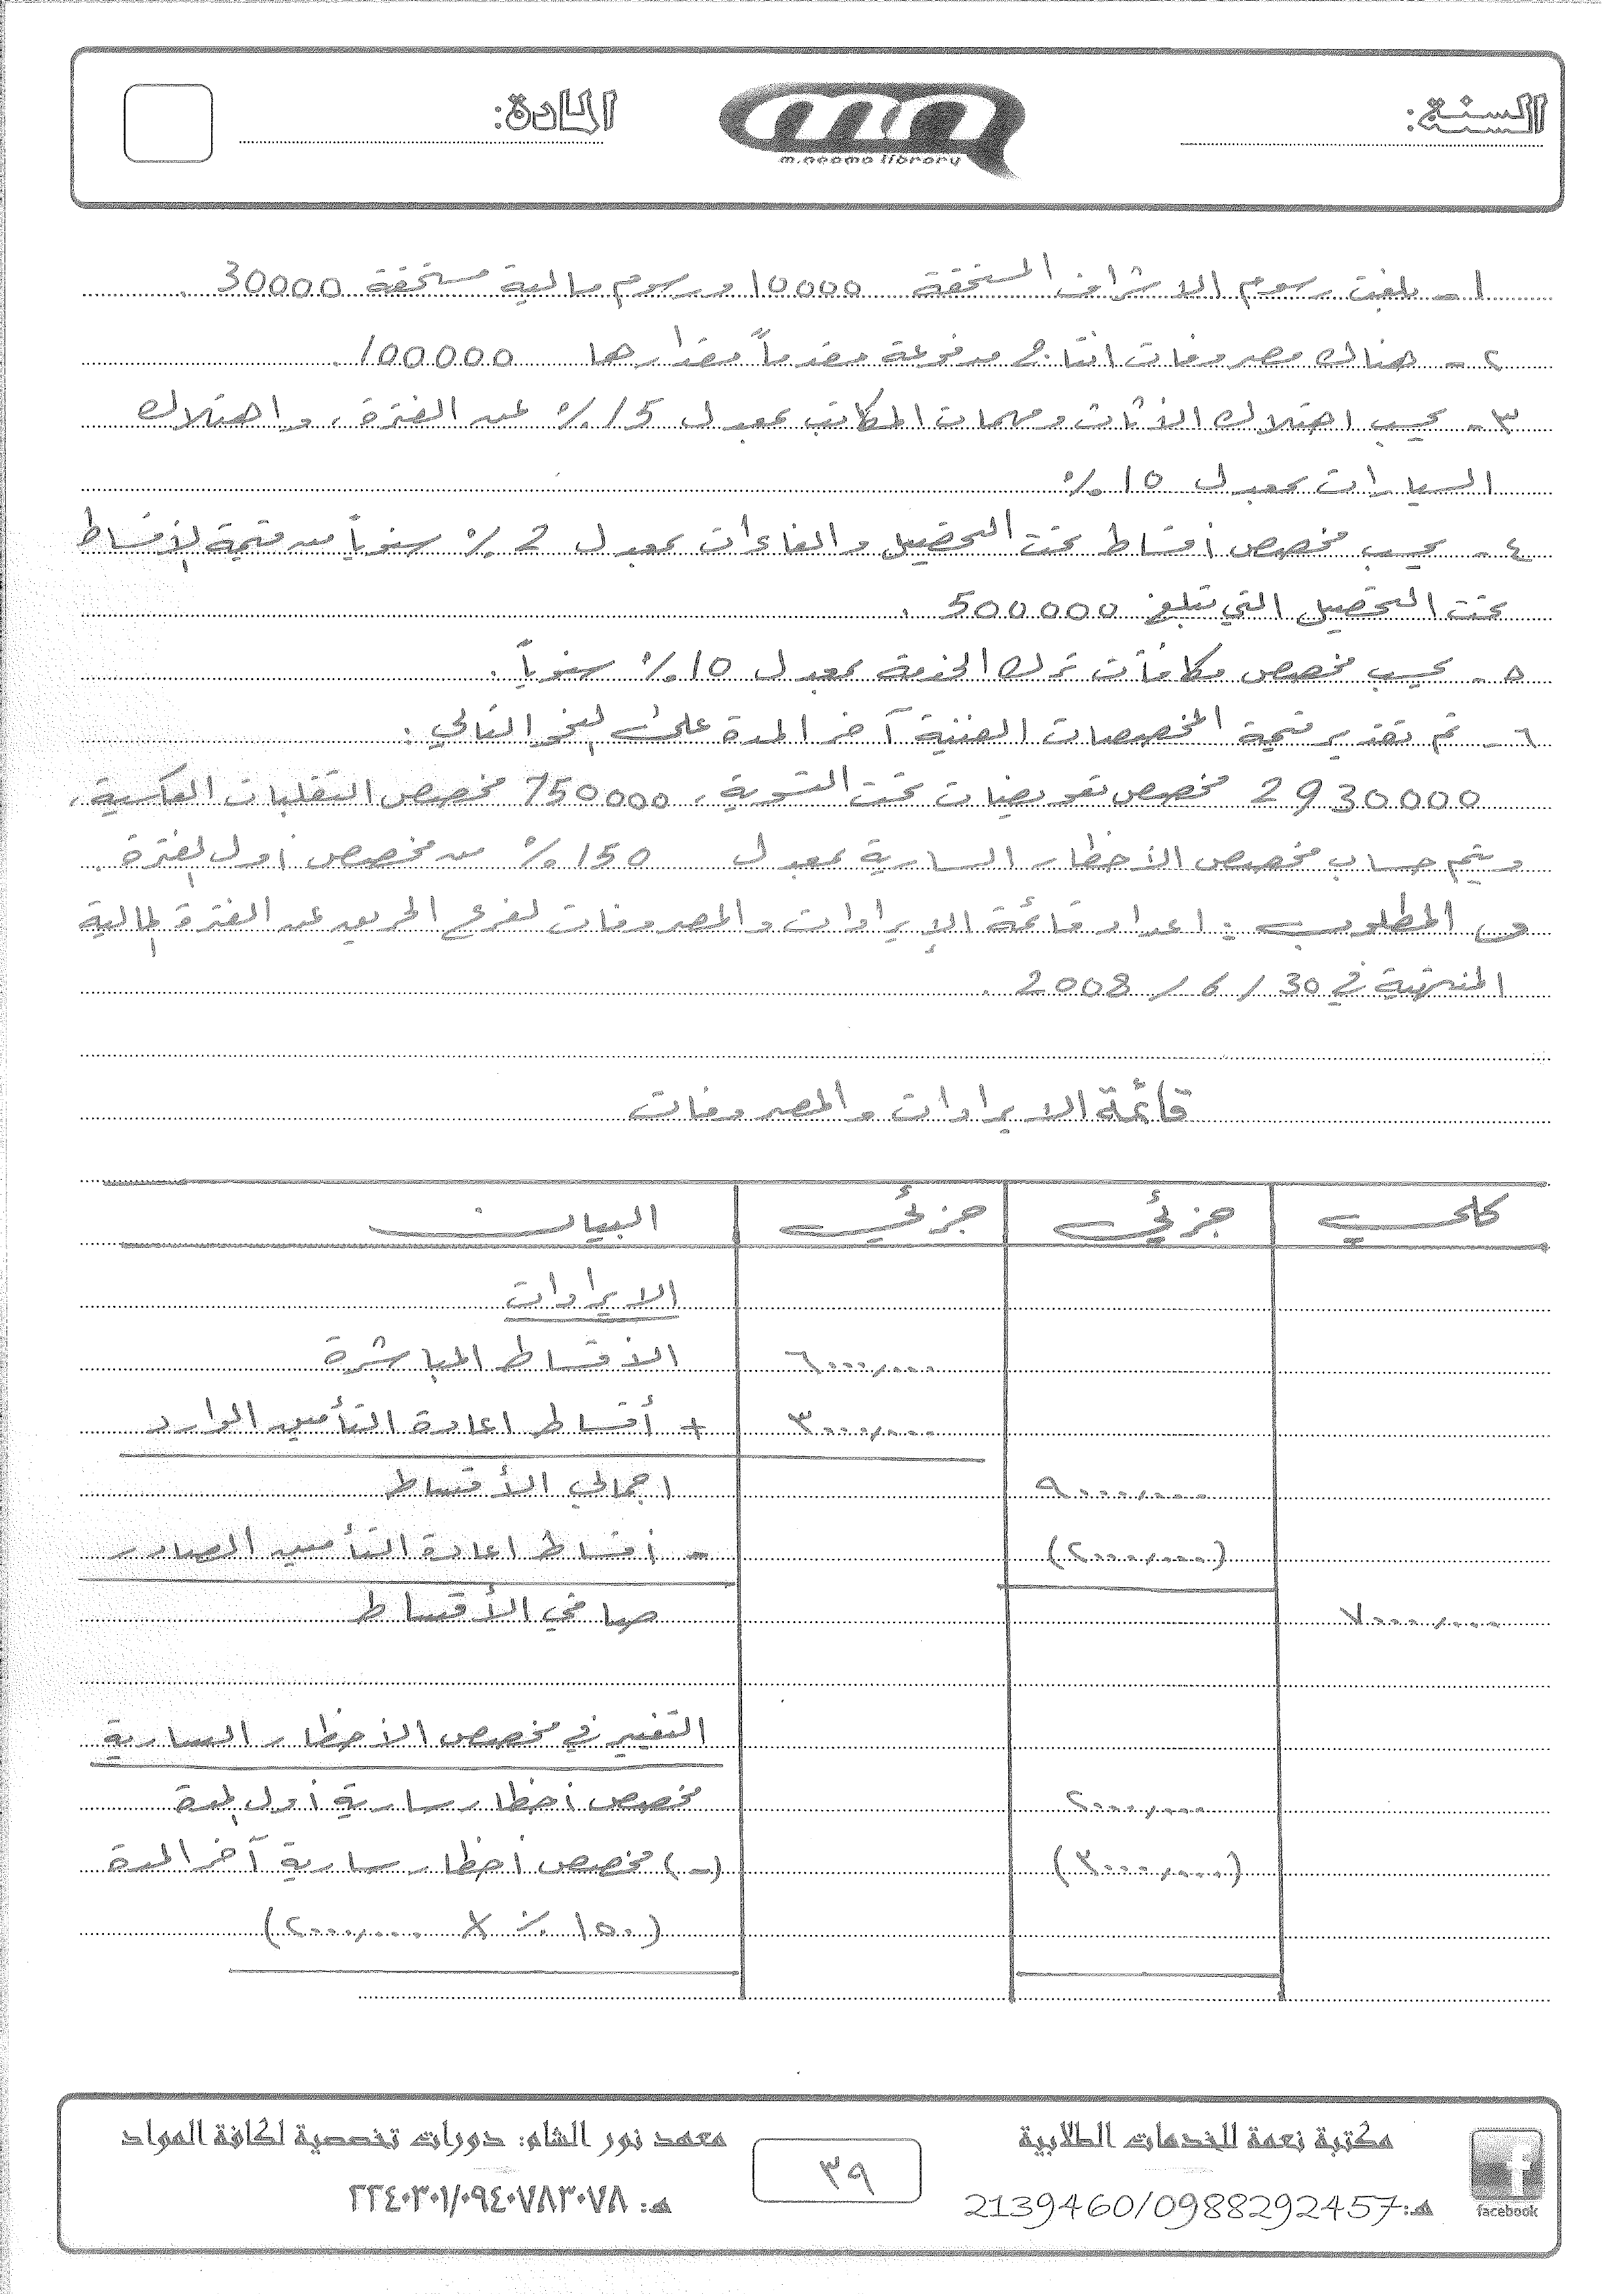 السنة:
المادة:
m.neama library
١- بلغت رسوم الاشراف المستحقة 10000 ورسوم مالية مستحقة 30000 .
٢- هناك مصروفات انتاج مدفوعة مقدماً مقدارها 100000 .
٣- يحسب اهتلاك الأثاث ومهمات المكاتب بمعدل 15٪ عن الفترة ، واهتلاك
السيارات بمعدل 10٪
٤- يحسب مخصص أقساط تحت التحصيل والغاءات بمعدل 2٪ سنوياً من قيمة الأقساط
تحت التحصيل التي تبلغ 500000 .
٥- يحسب مخصص مكافآت ترك الخدمة بمعدل 10٪ سنوياً .
٦- تم تقدير قيمة المخصصات الفنية آخر المدة على النحو التالي :
2930000 مخصص تعويضات تحت التسوية ، 750000 مخصص التقلبات العكسية ،
ويتم حساب مخصص الأخطار السارية بمعدل 150٪ من مخصص أول الفترة .
المطلوب : اعداد قائمة الإيرادات والمصروفات لفرع الحريق عن الفترة المالية
المنتهية في 30 / 6 / 2008 .
قائمة الايرادات والمصروفات
كلي جزئي جزئي البيان
الايرادات
٦٠٠٠,٠٠٠ الأقساط المباشرة
٣٠٠٠,٠٠٠ + أقساط اعادة التأمين الوارد
٩٠٠٠,٠٠٠ اجمالي الأقساط
(٢٠٠٠,٠٠٠) - أقساط اعادة التأمين الصادر
٧٠٠٠,٠٠٠ صافي الأقساط
التغيير في مخصص الأخطار السارية
٢٠٠٠,٠٠٠ مخصص أخطار سارية أول المدة
(٣٠٠٠,٠٠٠) (-) مخصص أخطار سارية آخر المدة
(١٥٠٪ × ٢٠٠٠,٠٠٠)
مكتبة نعمة للخدمات الطلابية
هـ: 2139460/0988292457
facebook
٣٩
معهد نور الشام: دورات تخصصية لكافة المواد
هـ: ٢٢٤٠٣٠١/٠٩٤٠٧٨٣٠٧٨